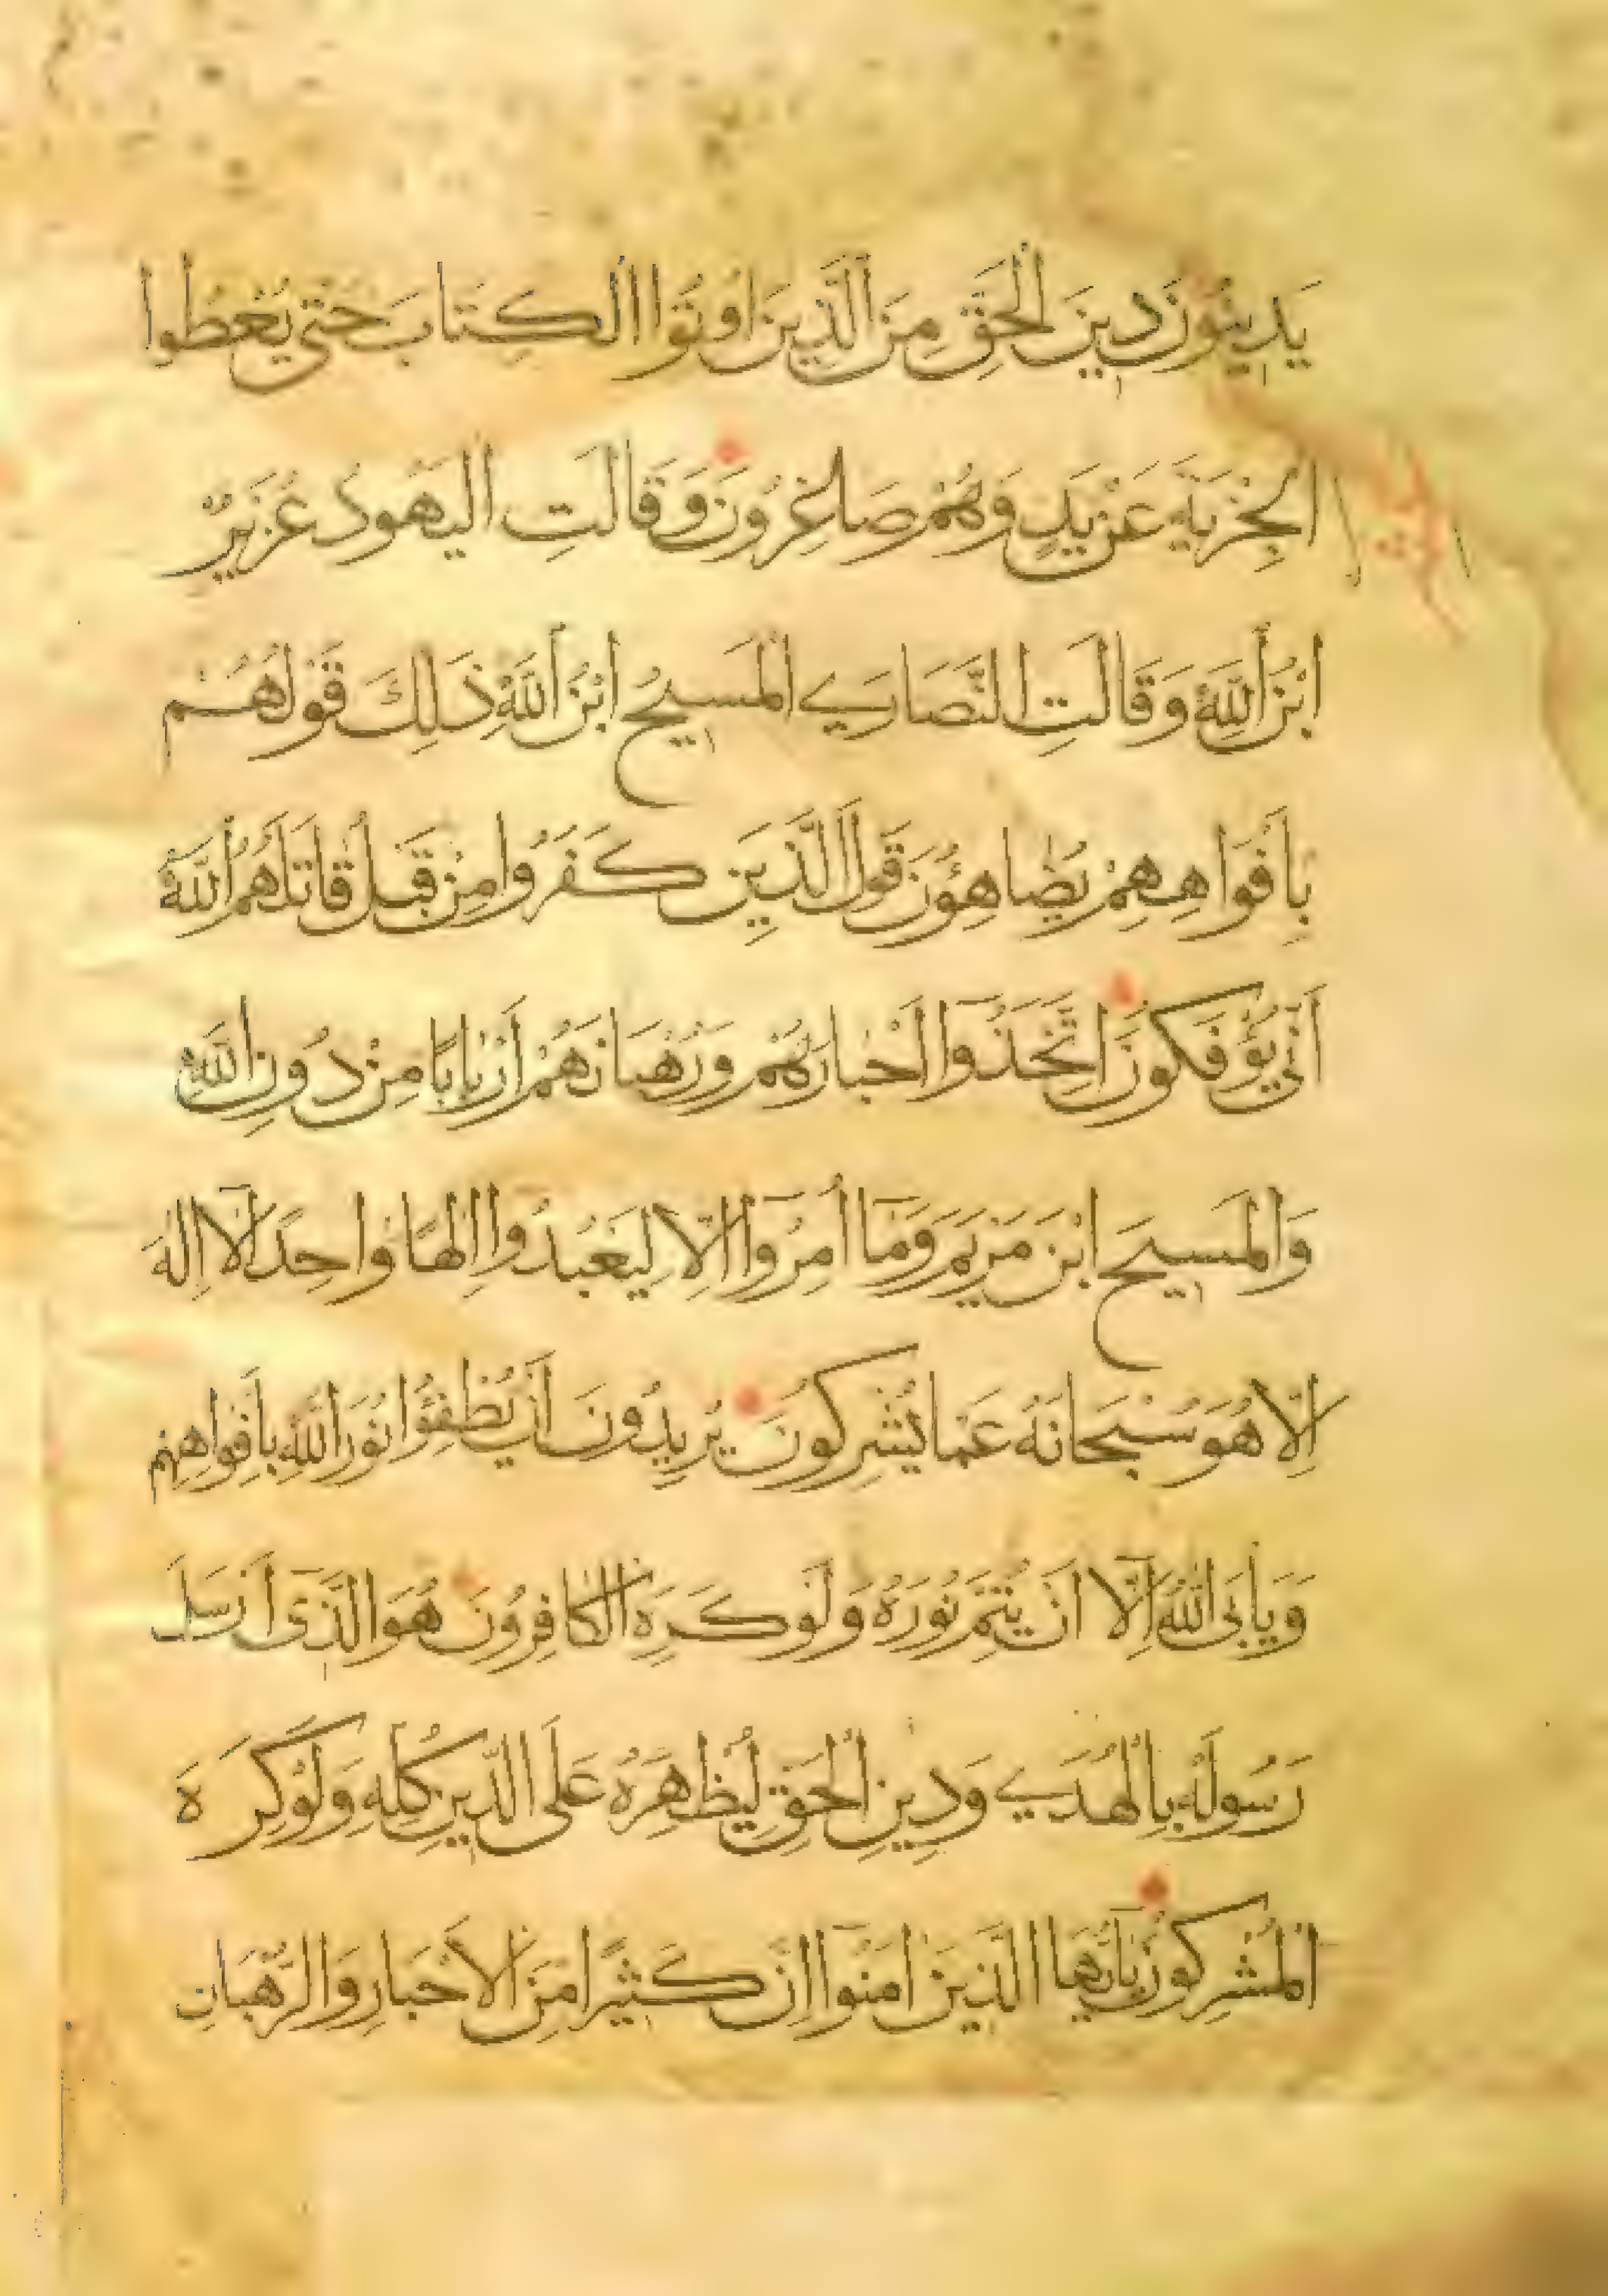 يَدِينُونَ دِينَ الْحَقِّ مِنَ الَّذِينَ اُوتُوا الْكِتَابَ حَتّٰى يُعْطُوا
الْجِزْيَةَ عَنْ يَدٍ وَهُمْ صَاغِرُونَ وَقَالَتِ الْيَهُودُ عُزَيْرٌ
ابْنُ اللّٰهِ وَقَالَتِ النَّصَارَى الْمَسِيحُ ابْنُ اللّٰهِ ذَلِكَ قَوْلُهُمْ
بِأَفْوَاهِهِمْ يُضَاهِؤُنَ قَوْلَ الَّذِينَ كَفَرُوا مِنْ قَبْلُ قَاتَلَهُمُ اللّٰهُ
أَنّٰى يُؤْفَكُونَ اِتَّخَذُوا أَحْبَارَهُمْ وَرُهْبَانَهُمْ أَرْبَابًا مِنْ دُونِ اللّٰهِ
وَالْمَسِيحَ ابْنَ مَرْيَمَ وَمَا أُمِرُوا اِلَّا لِيَعْبُدُوا اِلٰهًا وَاحِدًا لَا اِلٰهَ
اِلَّا هُوَ سُبْحَانَهُ عَمَّا يُشْرِكُونَ يُرِيدُونَ أَنْ يُطْفِؤُا نُورَ اللّٰهِ بِأَفْوَاهِهِمْ
وَيَأْبَى اللّٰهُ اِلَّا اَنْ يُتِمَّ نُورَهُ وَلَوْ كَرِهَ الْكَافِرُونَ هُوَ الَّذِى أَرْسَلَ
رَسُولَهُ بِالْهُدَى وَدِينِ الْحَقِّ لِيُظْهِرَهُ عَلَى الدِّينِ كُلِّهِ وَلَوْ كَرِهَ
الْمُشْرِكُونَ يَاأَيُّهَا الَّذِينَ اٰمَنُوا اِنَّ كَثِيرًا مِنَ الْأَحْبَارِ وَالرُّهْبَانِ